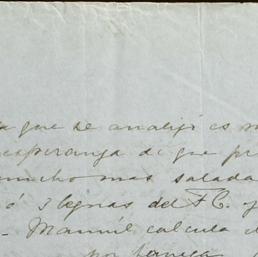 que se analizó es m
esperanza de que pr
mucho mas salada
ó 3 leguas del F.C. y
Manuel calcula
por fanega